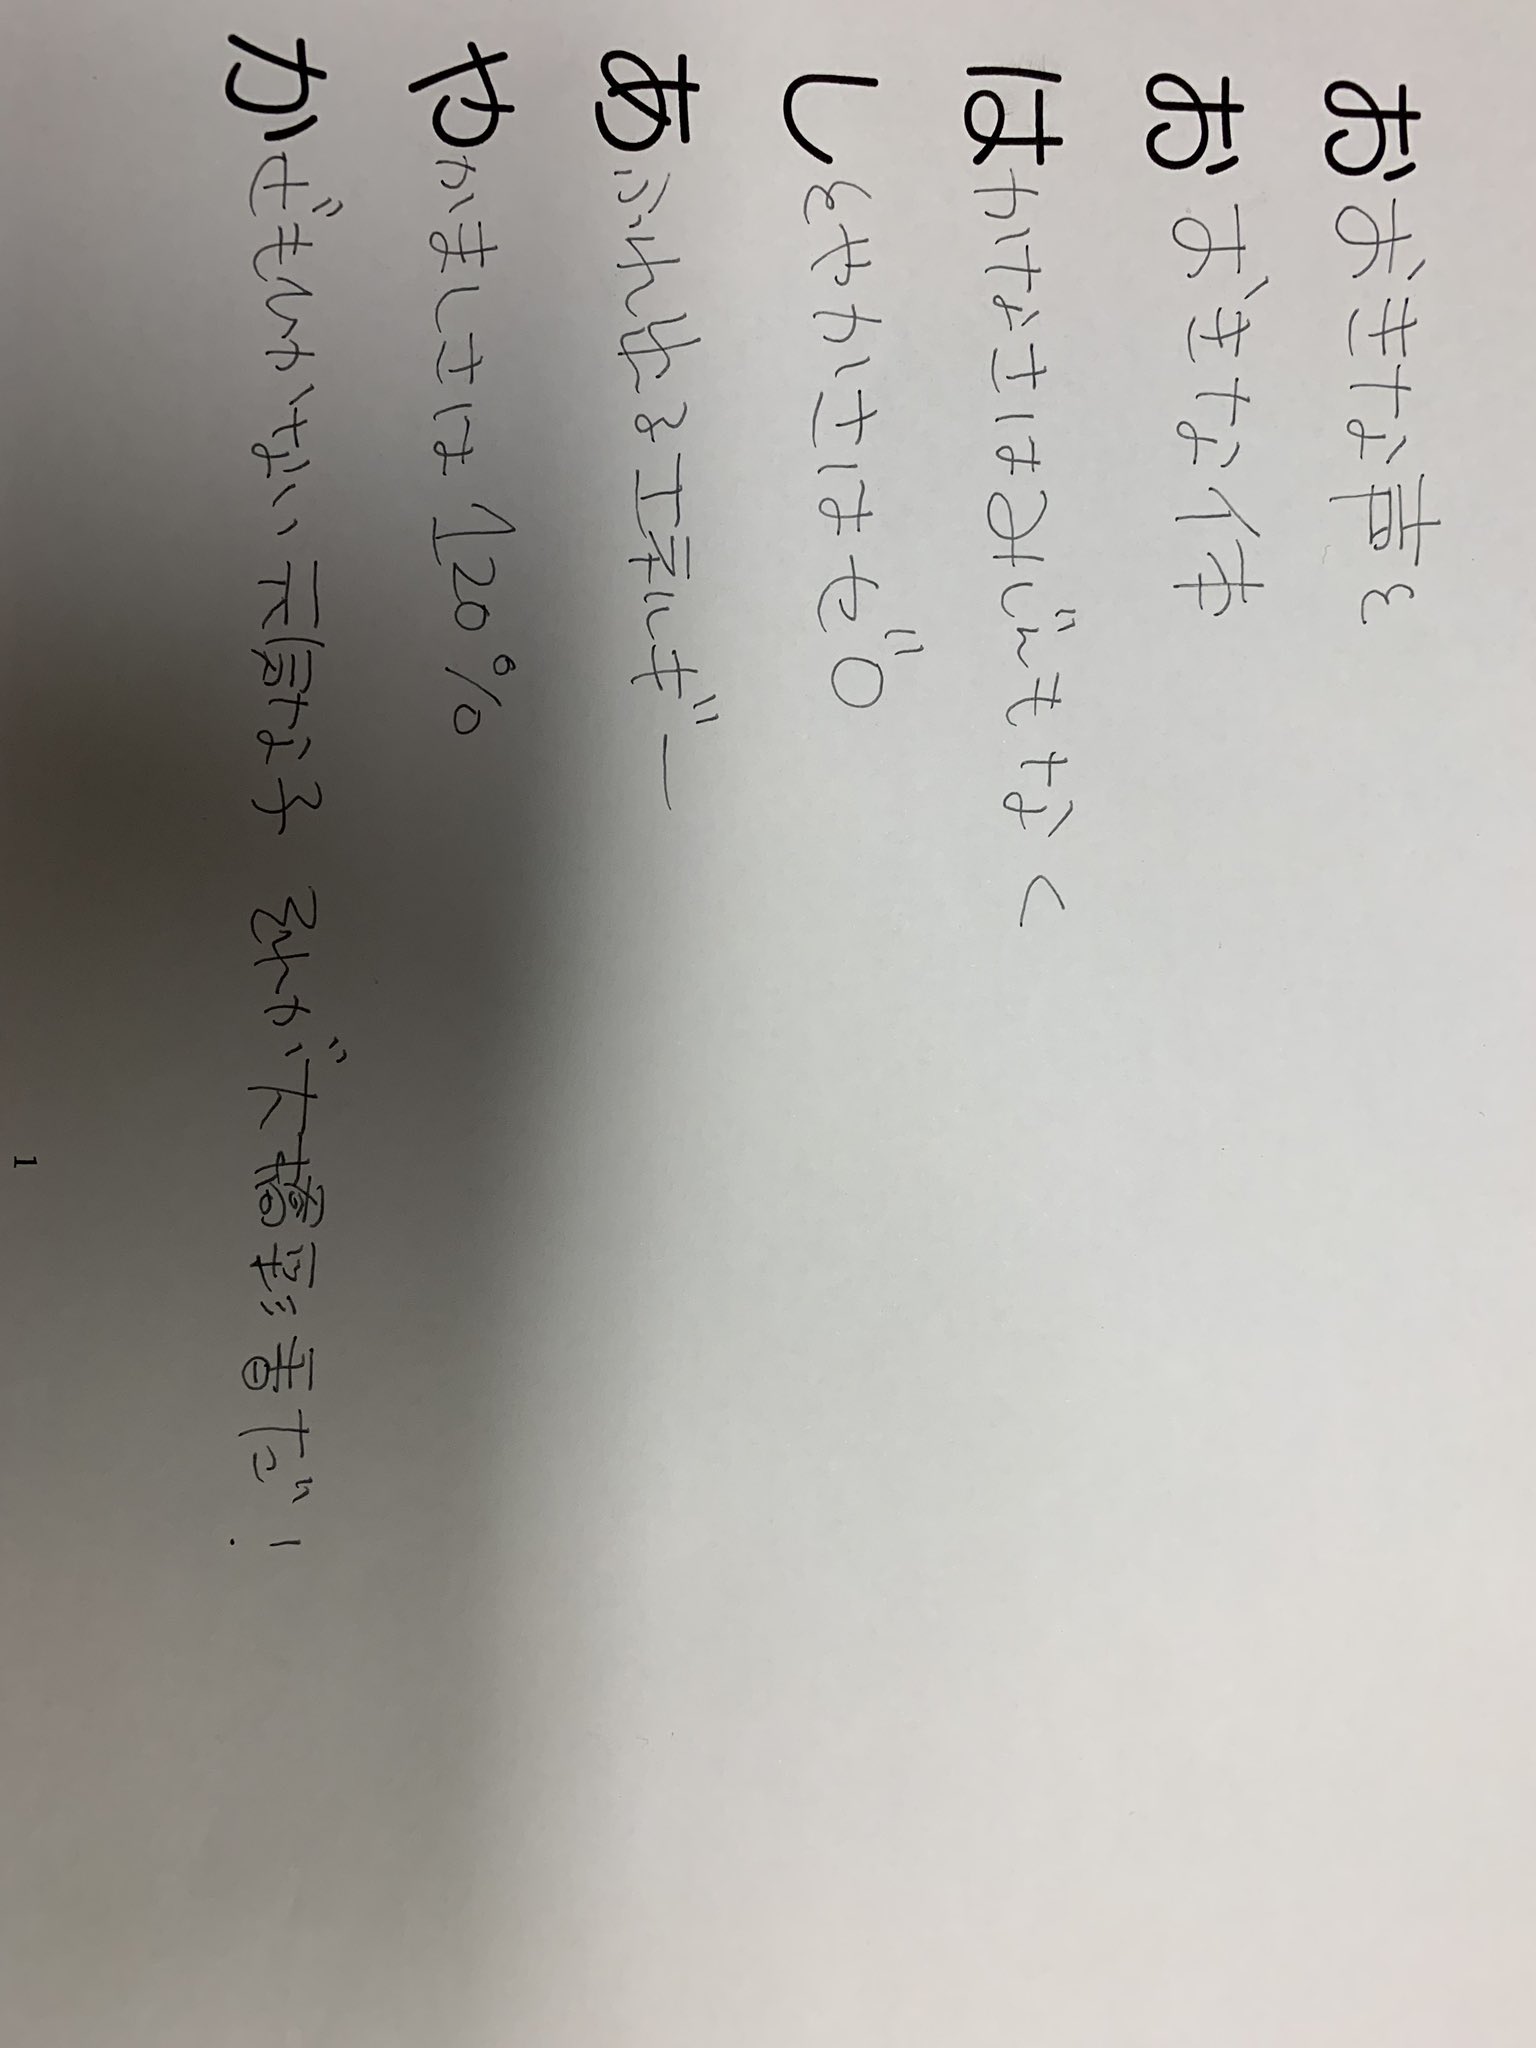 おおきな声と
おおきな体
はかなさはみじんもなく
しとやかさはゼロ
あふれ出るエネルギー
やかましさは120%
かぜもひかない元気な子 それが大橋彩香だ!
1